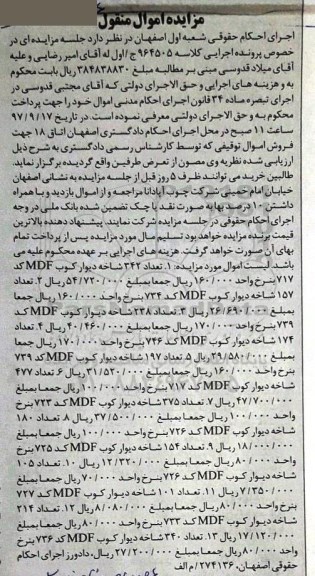 مزایده اموال منقول
اجرای احکام حقوقی شعبه اول اصفهان در نظر دارد جلسه مزایده ای در
خصوص پرونده اجرایی کلاسه ۹۶۴۵۰۵ ج/اول له آقای امیر رضایی و علیه
آقای میلاد قدوسی مبنی بر مطالبه مبلغ ۳۸۴۸۳۸۸۳۰ ریال بابت محکوم
به و هزینه های اجرایی و حق الاجرای دولتی که آقای مجتبی قدوسی در
اجرای تبصره ماده ۳۴ قانون اجرای احکام مدنی اموال خود را جهت پرداخت
محکوم به و حق الاجرای دولتی معرفی نموده است. در تاریخ ۹۷/۹/۱۷
ساعت ۱۱ صبح در محل اجرای احکام دادگستری اصفهان اتاق ۱۸ جهت
فروش اموال توقیفی که توسط کارشناس رسمی دادگستری به شرح ذیل
ارزیابی شده نظریه وی مصون از تعرض طرفین واقع گردیده برگزار نماید.
طالبین خرید می توانند ظرف ۵ روز قبل از جلسه مزایده به نشانی اصفهان
خیابان امام خمینی شرکت چوب آپادانا مراجعه و از اموال بازدید و با همراه
داشتن ۱۰ درصد بهاء به صورت نقد یا چک تضمین شده بانک ملی در وجه
اجرای احکام حقوقی در جلسه مزایده شرکت نمایند. پیشنهاد دهنده بالاترین
قیمت برنده مزایده خواهد بود تسلیم مال مورد مزایده پس از پرداخت تمام
بهای آن صورت خواهد گرفت. هزینه های اجرایی بر عهده محکوم علیه می
باشد. لیست اموال مورد مزایده: ۱. تعداد ۳۴۲ شاخه دیوار کوب MDF کد
۷۱۷ بنرخ واحد ۱۶۰/۰۰۰ ریال جمعا بمبلغ ۵۴/۷۲۰/۰۰۰ ریال ۲. تعداد
۱۵۷ شاخه دیوار کوب MDF کد ۷۳۴ بنرخ واحد ۱۶۰/۰۰۰ ریال جمعا
بمبلغ ۲۶/۶۹۰/۰۰۰ ریال ۳. تعداد ۲۳۸ شاخه دیوار کوب MDF کد
۷۳۹ بنرخ واحد ۱۷۰/۰۰۰ ریال جمعا بمبلغ ۴۰/۴۶۰/۰۰۰ ریال ۴. تعداد
۱۷۴ شاخه دیوار کوب MDF کد ۷۴۶ بنرخ واحد ۱۷۰/۰۰۰ ریال جمعا
بمبلغ ۲۹/۵۸۰/۰۰۰ ریال ۵. تعداد ۱۹۷ شاخه دیوار کوب MDF کد ۷۳۹
بنرخ واحد ۱۶۰/۰۰۰ ریال جمعا بمبلغ ۳۱/۵۲۰/۰۰۰ ریال ۶. تعداد ۴۷۷
شاخه دیوار کوب MDF کد ۷۱۷ بنرخ واحد ۱۰۰/۰۰۰ ریال جمعا بمبلغ
۴۷/۷۰۰/۰۰۰ ریال ۷. تعداد ۳۷۵ شاخه دیوار کوب MDF کد ۷۲۳ بنرخ
واحد ۱۰۰/۰۰۰ ریال جمعا بمبلغ ۳۷/۵۰۰/۰۰۰ ریال ۸. تعداد ۱۸۰
شاخه دیوار کوب MDF کد ۷۲۶ بنرخ واحد ۱۰۰/۰۰۰ ریال جمعا بمبلغ
۱۸/۰۰۰/۰۰۰ ریال ۹. تعداد ۱۵۴ شاخه دیوار کوب MDF کد ۷۲۵ بنرخ
واحد ۸۰/۰۰۰ ریال جمعا بمبلغ ۱۲/۳۲۰/۰۰۰ ریال ۱۰. تعداد ۱۰۵
شاخه دیوار کوب MDF کد ۷۲۶ بنرخ واحد ۷۰/۰۰۰ ریال جمعا بمبلغ
۷/۳۵۰/۰۰۰ ریال ۱۱. تعداد ۱۰۱ شاخه دیوار کوب MDF کد ۷۲۷
بنرخ واحد ۸۰/۰۰۰ ریال جمعا بمبلغ ۸/۰۸۰/۰۰۰ ریال ۱۲. تعداد ۲۱۴
شاخه دیوار کوب MDF کد ۷۳۳ بنرخ واحد ۸۰/۰۰۰ ریال جمعا بمبلغ
۱۷/۱۲۰/۰۰۰ ریال ۱۳. تعداد ۳۴۰ شاخه دیوار کوب MDF کد ۷۳۶ بنرخ
واحد ۸۰/۰۰۰ ریال جمعا بمبلغ ۲۷/۲۰۰/۰۰۰ ریال. دادورز اجرای احکام
حقوقی اصفهان. ۲۷۴۱۳۶/م الف